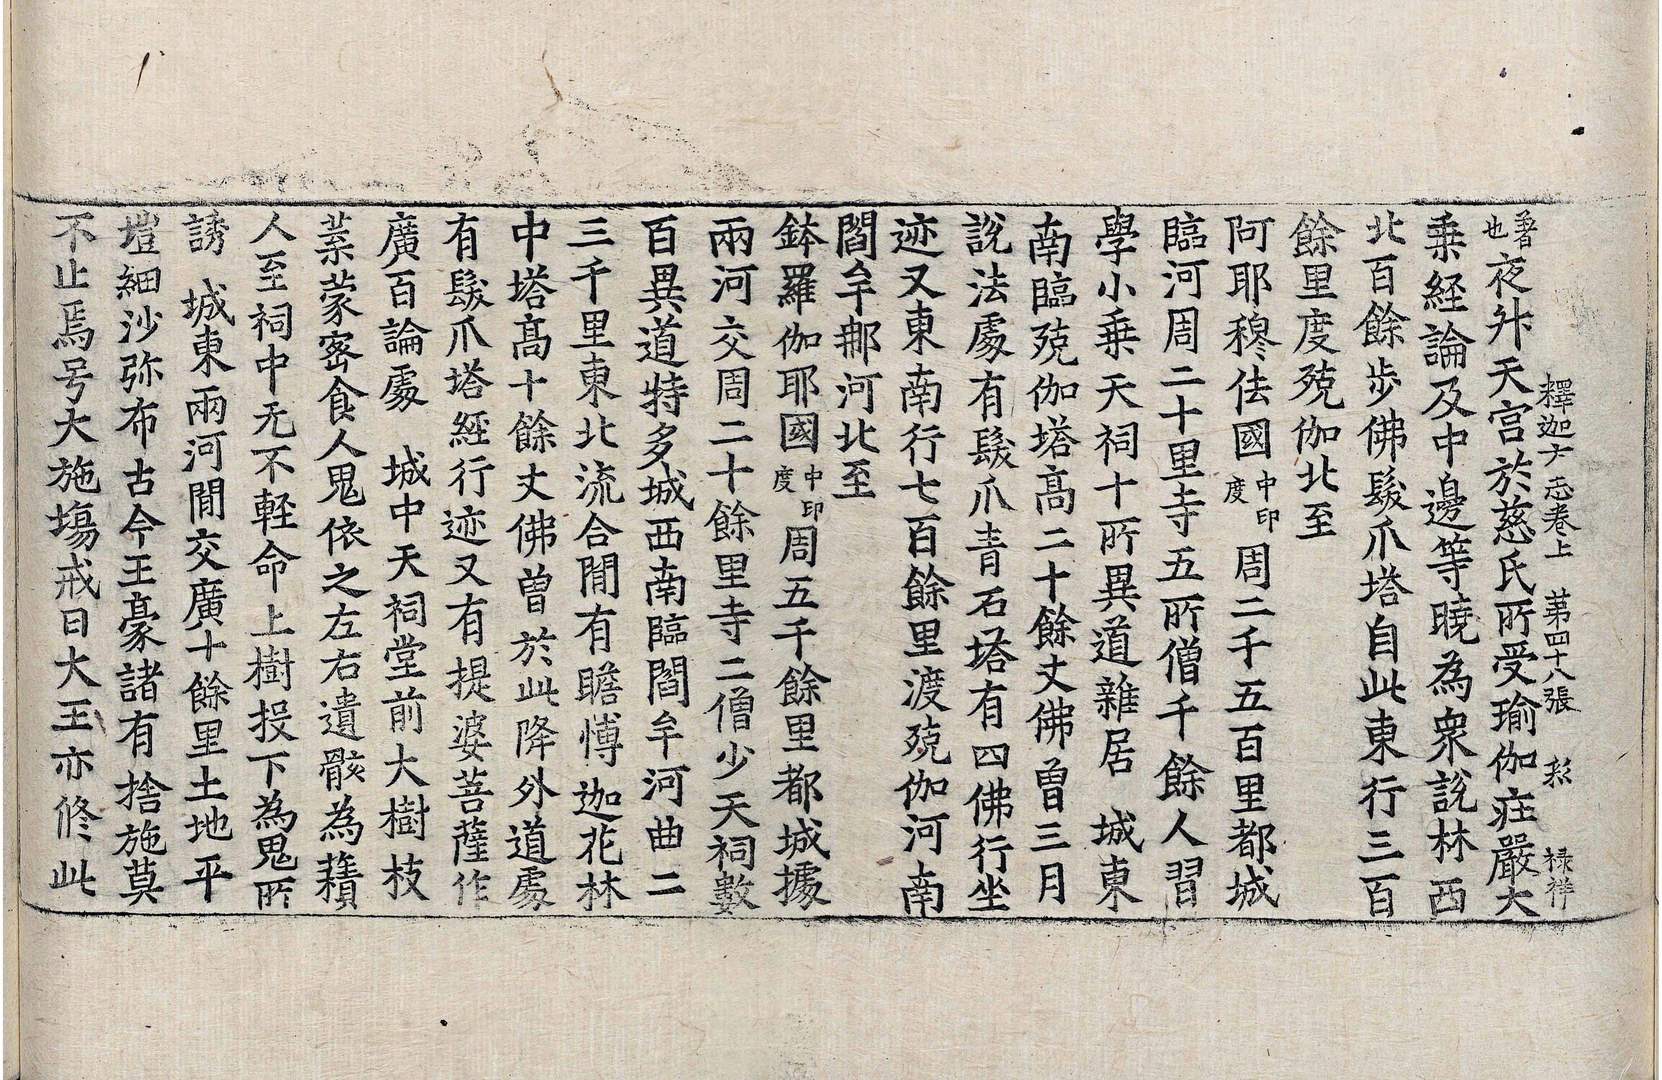 釋迦方志卷上 第四十八張 彩 祿祥
著也夜升天宮於慈氏所受瑜伽庄嚴大
乗經論及中邊等曉為衆說林西
北百餘步佛髮爪塔自此東行三百
餘里度殑伽北至
阿耶穆佉國中印度周二千五百里都城
臨河周二十里寺五所僧千餘人習
學小乗天祠十所異道雜居 城東
南臨殑伽塔髙二十餘丈佛曽三月
說法處有髮爪青石塔有四佛行坐
迹又東南行七百餘里渡殑伽河南
閻牟那河北至
鉢羅伽耶國中印度周五千餘里都城據
兩河交周二十餘里寺二僧少天祠數
百異道特多城西南臨閻牟河曲二
三千里東北流合閒有瞻博迦花林
中塔髙十餘丈佛曽於此降外道處
有髮爪塔經行迹又有提婆菩薩作
廣百論處 城中天祠堂前大樹枝
葉蒙密食人鬼依之左右遺骸為積
人至祠中无不輕命上樹投下為鬼所
誘 城東兩河閒交廣十餘里土地平
塏細沙弥布古今王豪諸有捨施莫
不止焉号大施塲戒日大王亦修此